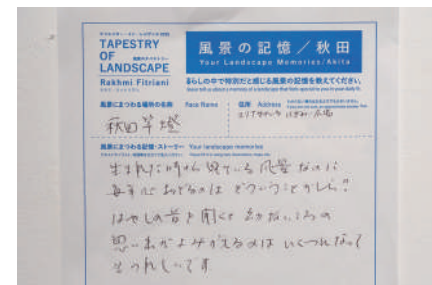 TAPESTRY
OF
LANDSCAPE
Rakhmi Fitriani
風景の記憶／秋田
Your Landscape Memories/Akita
暮らしの中で特別だと感じる風景の記憶を教えてください。
風景にまつわる場所の名称 Place Name
住所 Address
秋田竿燈
風景にまつわる記憶・ストーリー Your landscape memories
生まれた時から見ている風景なのに
毎年心おどるのはどういうことかしら？
はやしの音を聞くと幼ないころの
思い出がよみがえるのはいくつになって
もうれしいです